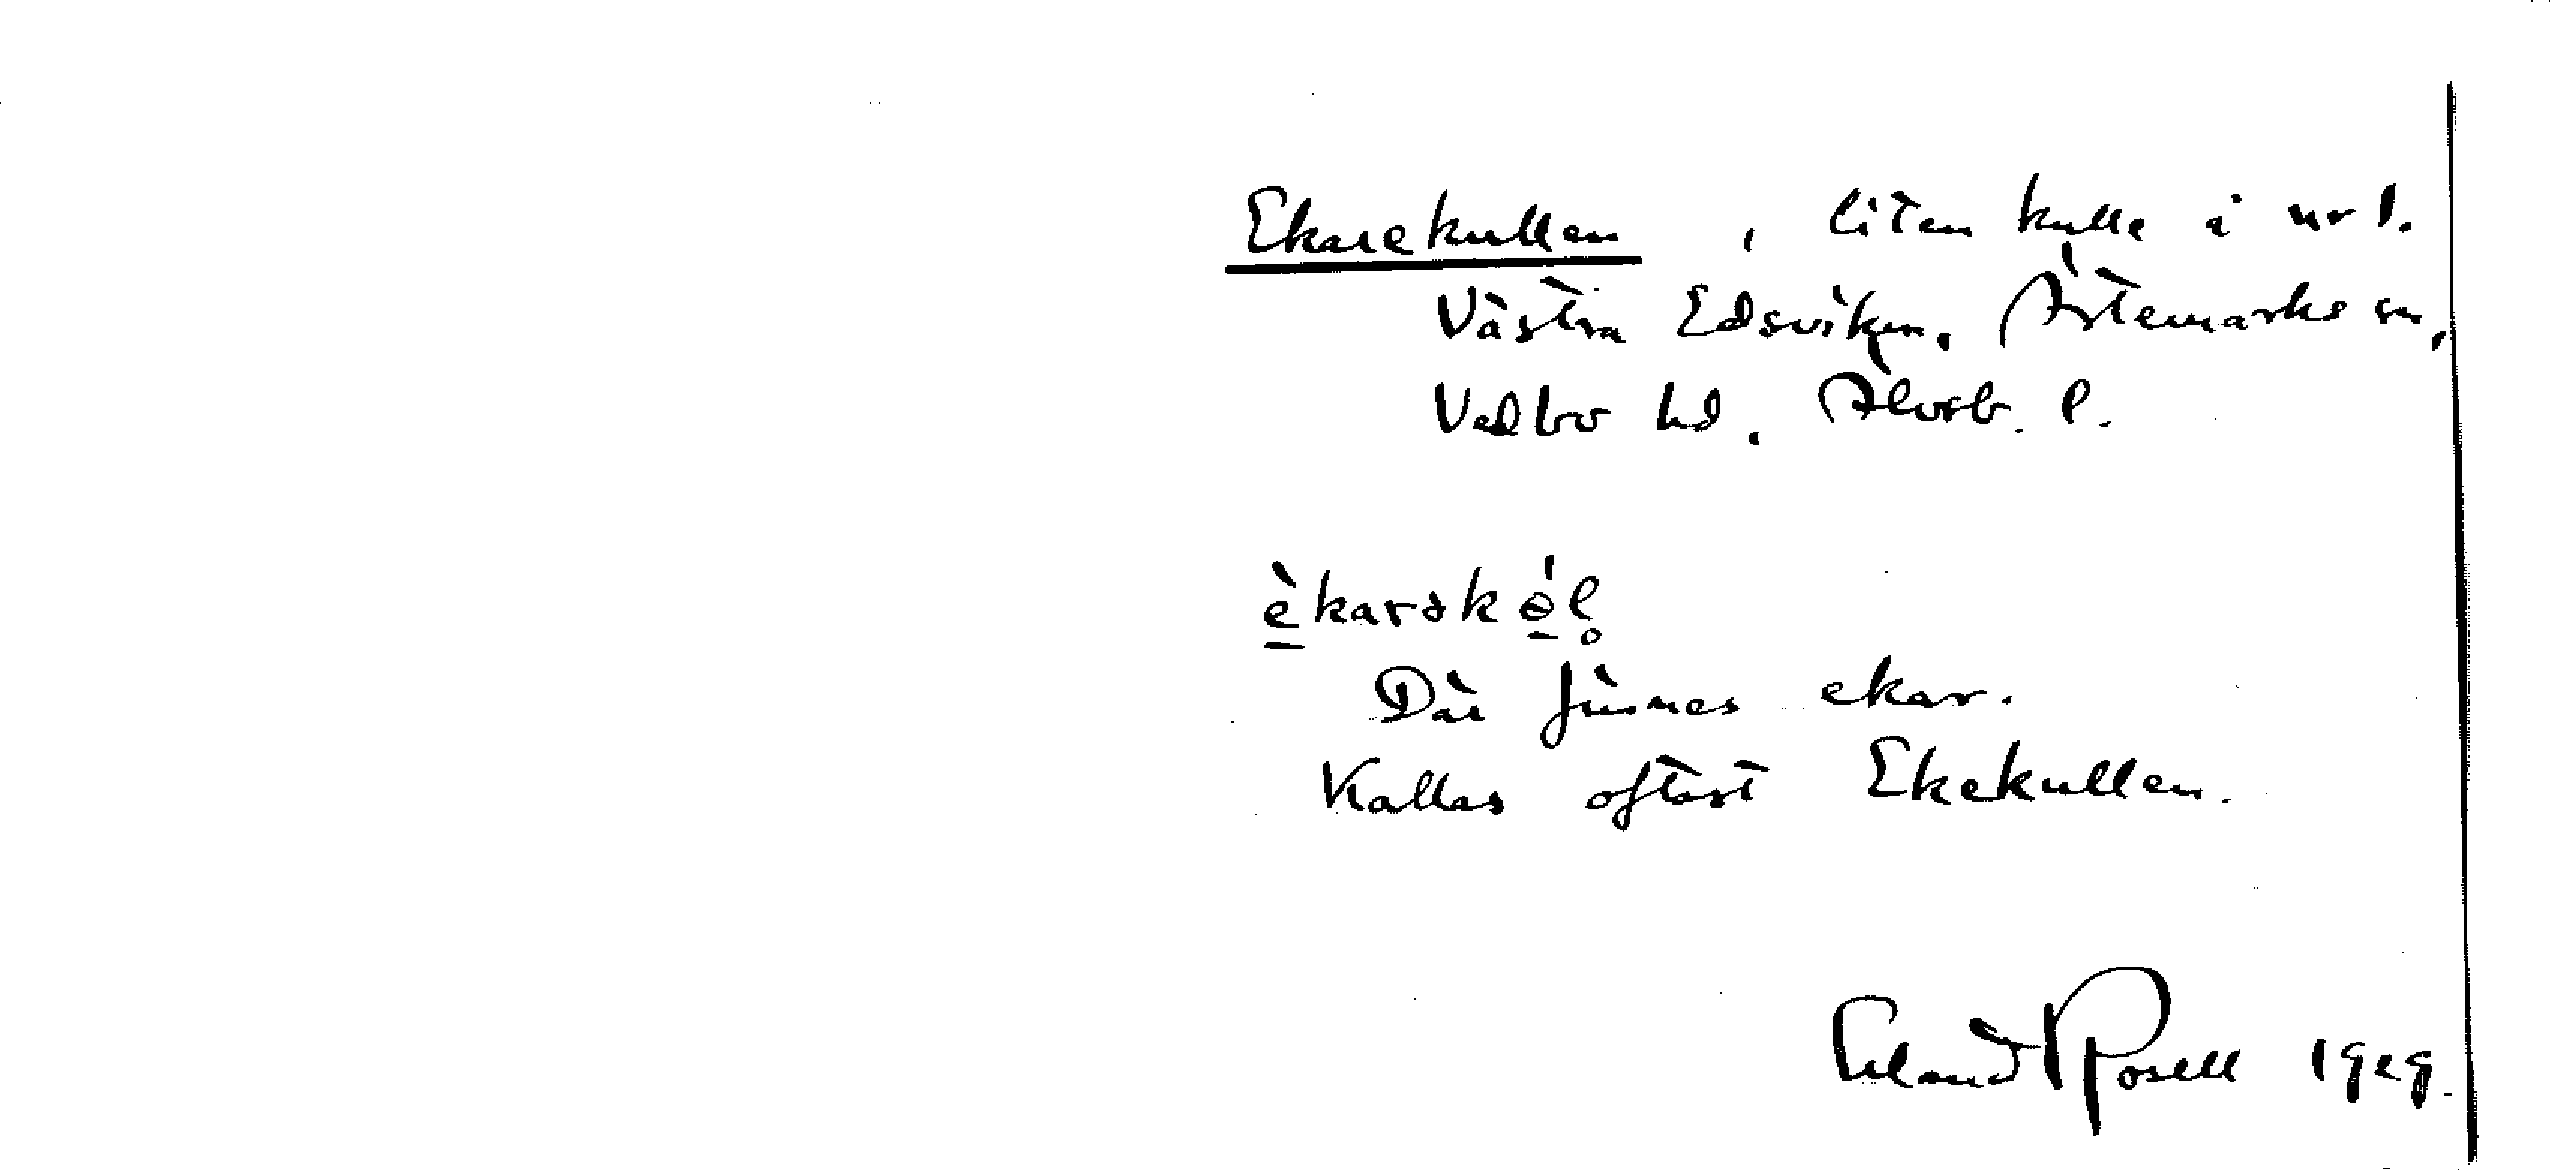 Ekarekullen, liten kulle i nr 1.
Västra Edsviken. Ärtemarks sn,
Vedbo hd. Älvsb. l.
èkarəkə́l̥
Där finnes ekar.
Kallas oftast Ekekullen.
Erland Rosell 1929.